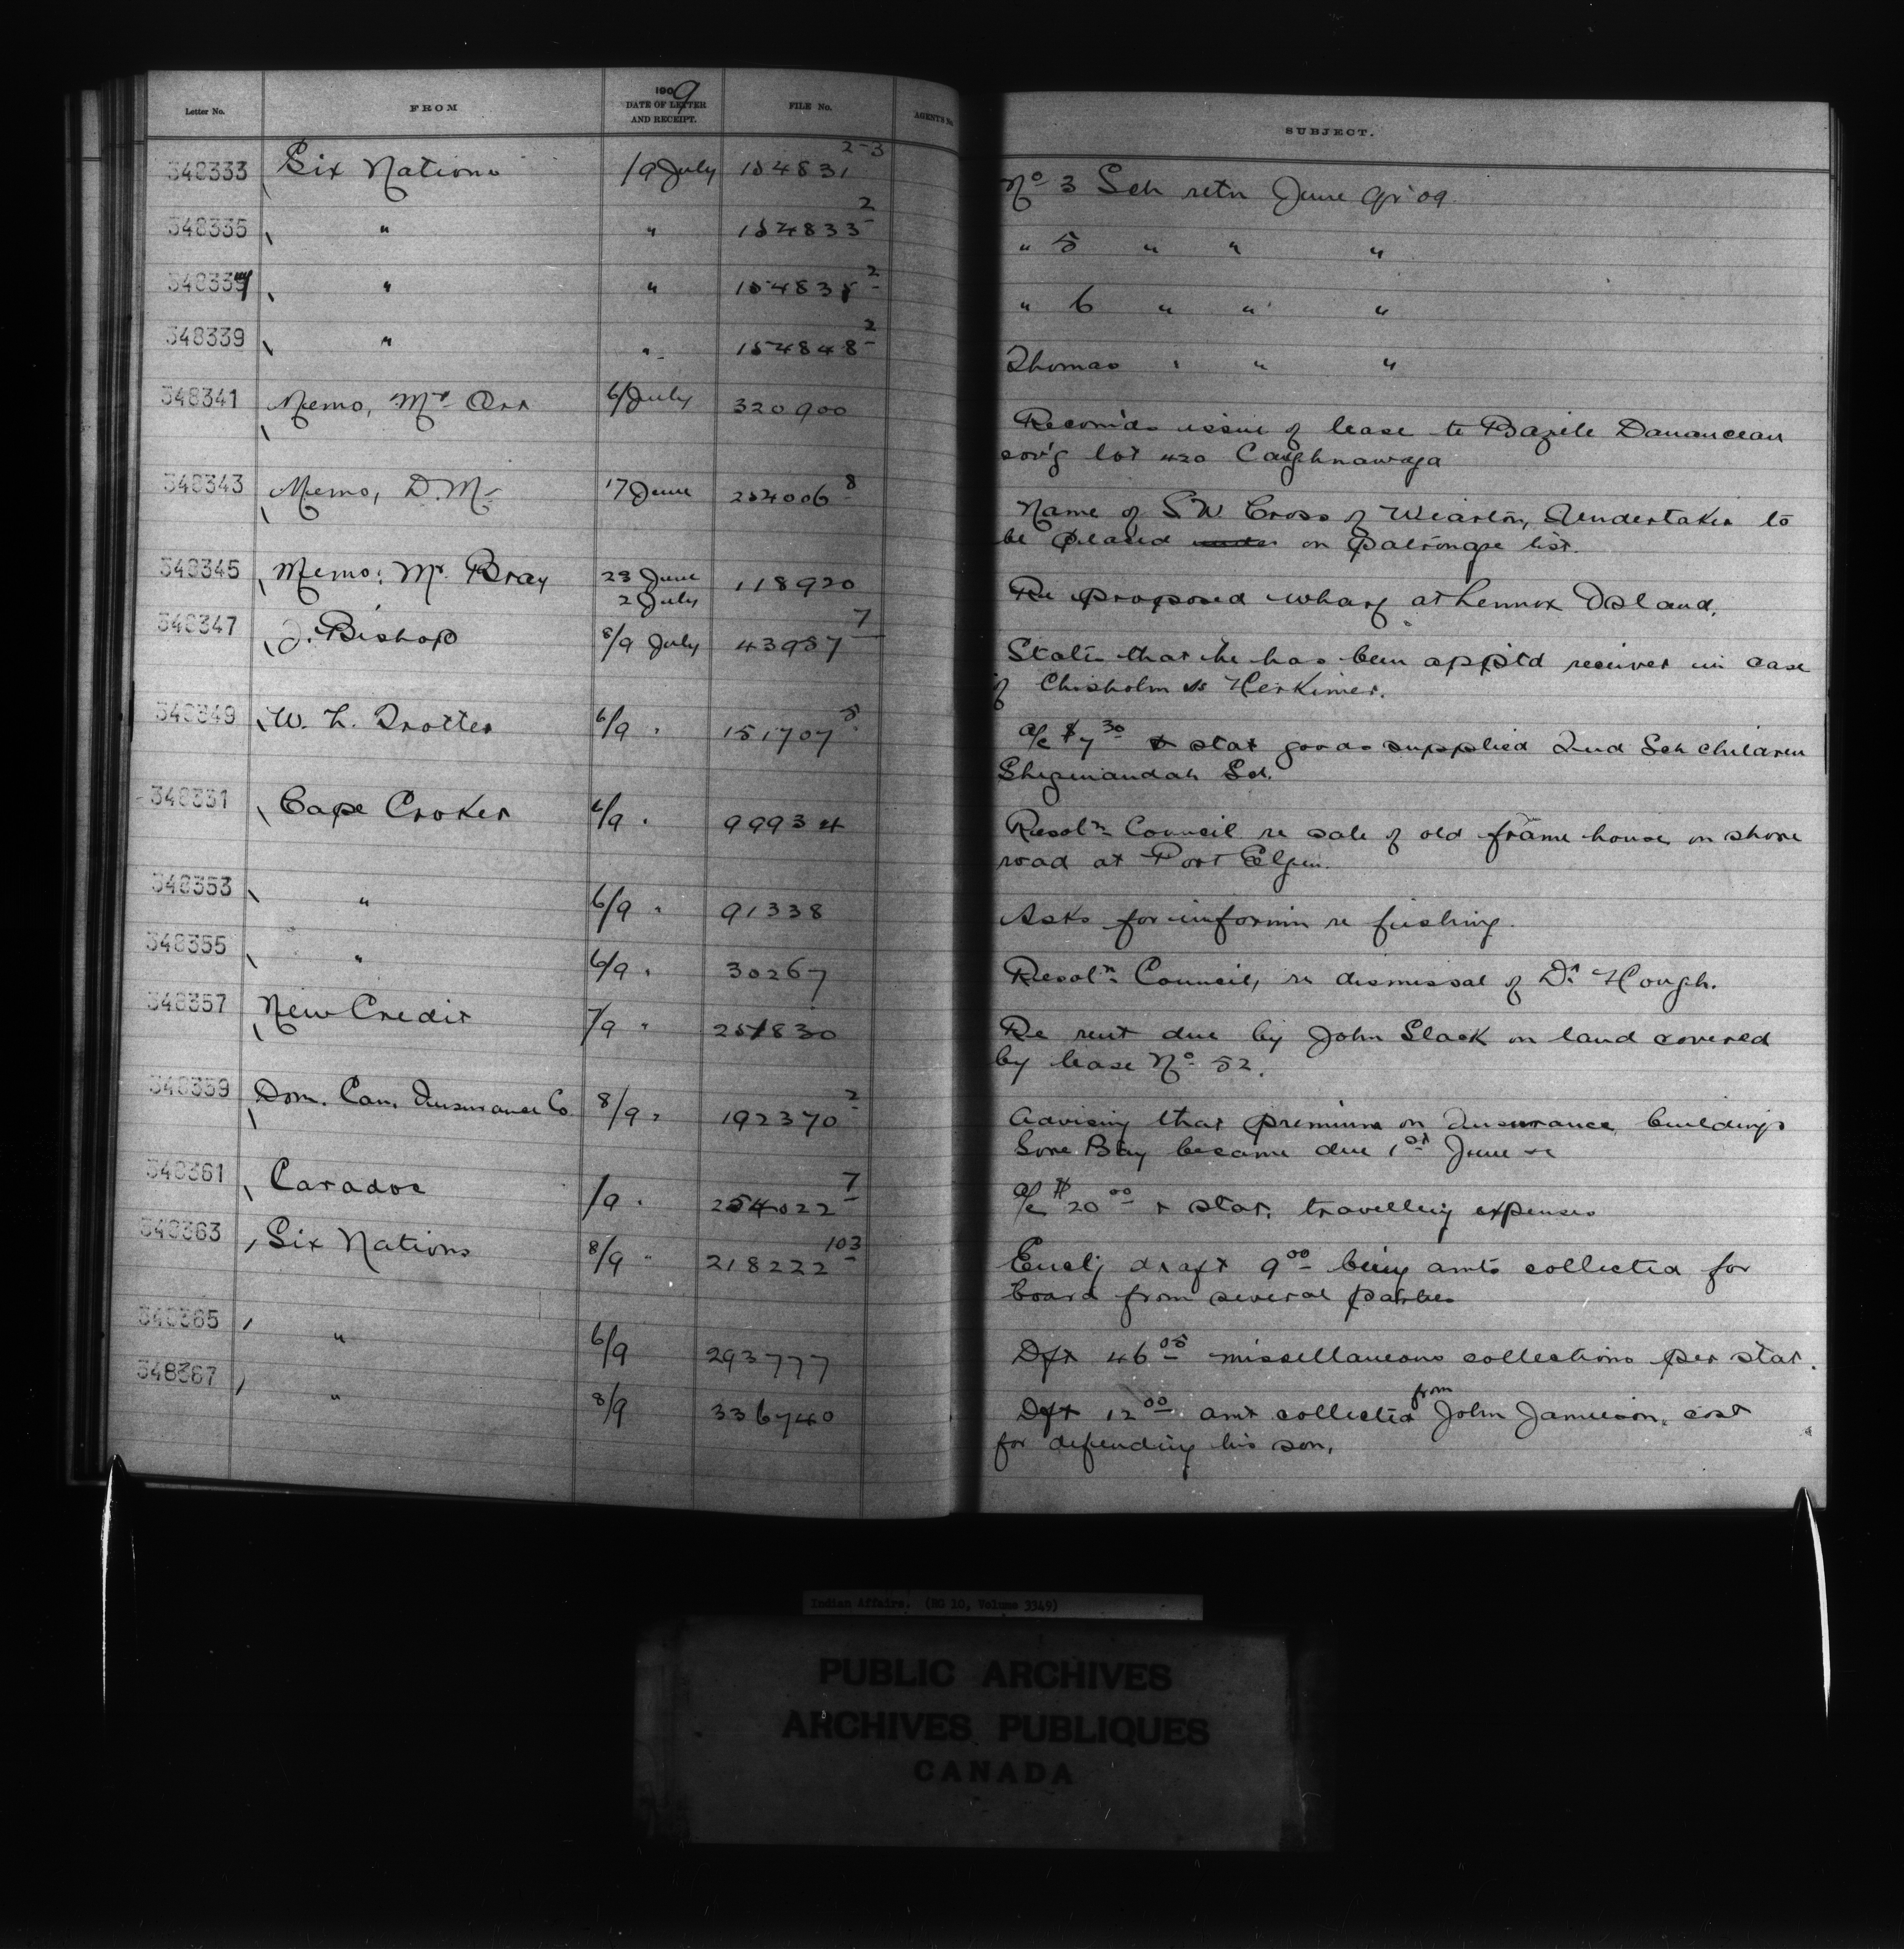 Letter No. FROM 1909 DATE OF LETTER AND RECEIPT. FILE No. AGENT'S No. SUBJECT.
348333 Six Nations /9 July 154831 2-3 No 3 Sch retn June qr 09
348335 " " 154833 2 " 5 " " "
34833 " " 15483 2 " 6 " " "
348339 " " 154848 2 Thomas " " "
348341 Memo, Mr Orr 6/July 320900 Recom'ds issue of lease to Bazile
cov'g lot 420 Caughnawaga
348343 Memo, D.M. 17 June 254006 8 Name of S W Cross of Wiarton, Undertaker to
be placed on patronage list.
348345 Memo: Mr. Bray 23 June 118920 Re proposed wharf at Lennox Island.
2 July
348347 J. Bishop 8/9 July 43957 7 States that he has been app'td receiver in case
of Chisholm vs Herkimer.
348349 W. L. Trotter 6/9 " 151707 5 a/c $7 30 & stat goods supplied Ind Sch children
Sheguiandah Sch.
348351 Cape Croker 6/9 " 99934 Resoltn Council re sale of old frame house on shore
road at Port Elgin.
348353 " 6/9 " 91338 Asks for informn re fishing.
348355 " 6/9 " 30267 Resoltn Council, re dismissal of Dr Hough.
348357 New Credit 7/9 " 251830 Re rent due by John Slack on land covered
by lease No 52.
348359 Dom. Can. Insurance Co 8/9 " 192370 2 Advising that premium on Insurance buildings
Gore Bay became due 1st June
348361 Caradoc /9 " 254022 7 a/c $20 00 & stat. travelling expenses
348363 Six Nations 8/9 " 218222 103 Encl'g draft 9 00 being amts collected for
board from several parties
348365 " 6/9 293777 Dft 46 05 missellaneous collections per stat.
348367 " 8/9 336740 Dft 12 00 amt collected from John Jamieson, cost
for defending his son,
Indian Affairs. (RG 10, Volume 3349)
PUBLIC ARCHIVES
ARCHIVES PUBLIQUES
CANADA